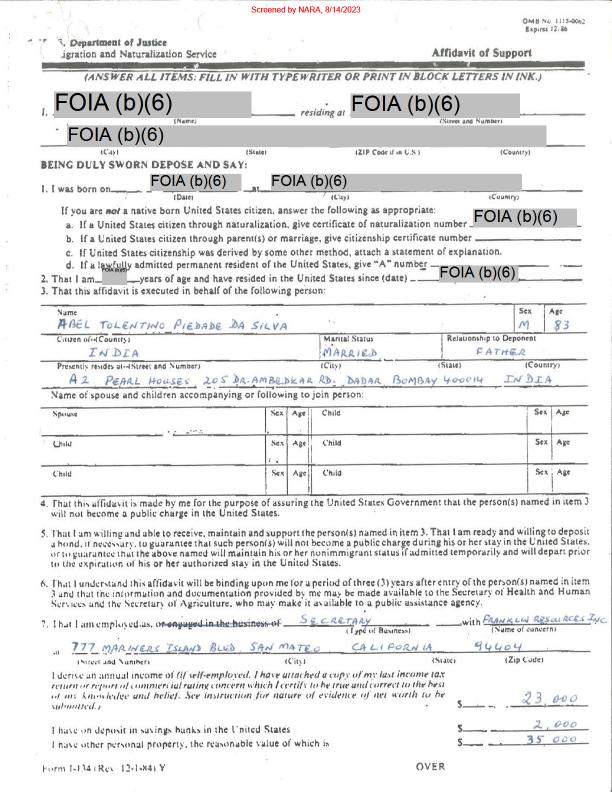 Screened by NARA, 8/14/2023
OMB No. 1115-0062
Expires 12-86
Department of Justice
Immigration and Naturalization Service
Affidavit of Support
(ANSWER ALL ITEMS: FILL IN WITH TYPEWRITER OR PRINT IN BLOCK LETTERS IN INK.)
I. FOIA (b)(6) residing at FOIA (b)(6)
(Name) (Street and Number)
FOIA (b)(6)
(City) (State) (ZIP Code if in U.S.) (Country)
BEING DULY SWORN DEPOSE AND SAY:
1. I was born on FOIA (b)(6) at FOIA (b)(6)
(Date) (City) (Country)
If you are not a native born United States citizen, answer the following as appropriate:
a. If a United States citizen through naturalization, give certificate of naturalization number FOIA (b)(6)
b. If a United States citizen through parent(s) or marriage, give citizenship certificate number
c. If United States citizenship was derived by some other method, attach a statement of explanation.
d. If a lawfully admitted permanent resident of the United States, give "A" number
2. That I am FOIA (b)(6) years of age and have resided in the United States since (date) FOIA (b)(6)
3. That this affidavit is executed in behalf of the following person:
Name Sex Age
ABEL TOLENTINO PIEDADE DA SILVA M 83
Citizen of-(Country) Marital Status Relationship to Deponent
INDIA MARRIED FATHER
Presently resides at-(Street and Number) (City) (State) (Country)
A2 PEARL HOUSES 205 DR. AMBEDKAR RD. DADAR BOMBAY 400014 INDIA
Name of spouse and children accompanying or following to join person:
Spouse Sex Age Child Sex Age
Child Sex Age Child Sex Age
Child Sex Age Child Sex Age
4. That this affidavit is made by me for the purpose of assuring the United States Government that the person(s) named in item 3
will not become a public charge in the United States.
5. That I am willing and able to receive, maintain and support the person(s) named in item 3. That I am ready and willing to deposit
a bond, if necessary, to guarantee that such person(s) will not become a public charge during his or her stay in the United States,
or to guarantee that the above named will maintain his or her nonimmigrant status if admitted temporarily and will depart prior
to the expiration of his or her authorized stay in the United States.
6. That I understand this affidavit will be binding upon me for a period of three (3) years after entry of the person(s) named in item
3 and that the information and documentation provided by me may be made available to the Secretary of Health and Human
Services and the Secretary of Agriculture, who may make it available to a public assistance agency.
7. That I am employed as, or engaged in the business of SECRETARY with FRANKLIN RESOURCES INC.
(Type of Business) (Name of concern)
at 777 MARINERS ISLAND BLVD, SAN MATEO CALIFORNIA 94404
(Street and Number) (City) (State) (Zip Code)
I derive an annual income of (if self-employed, I have attached a copy of my last income tax
return or report of commercial rating concern which I certify to be true and correct to the best
of my knowledge and belief. See instruction for nature of evidence of net worth to be
submitted.) $ 23,000
I have on deposit in savings banks in the United States $ 2,000
I have other personal property, the reasonable value of which is $ 35,000
Form I-134 (Rev. 12-1-84) Y OVER